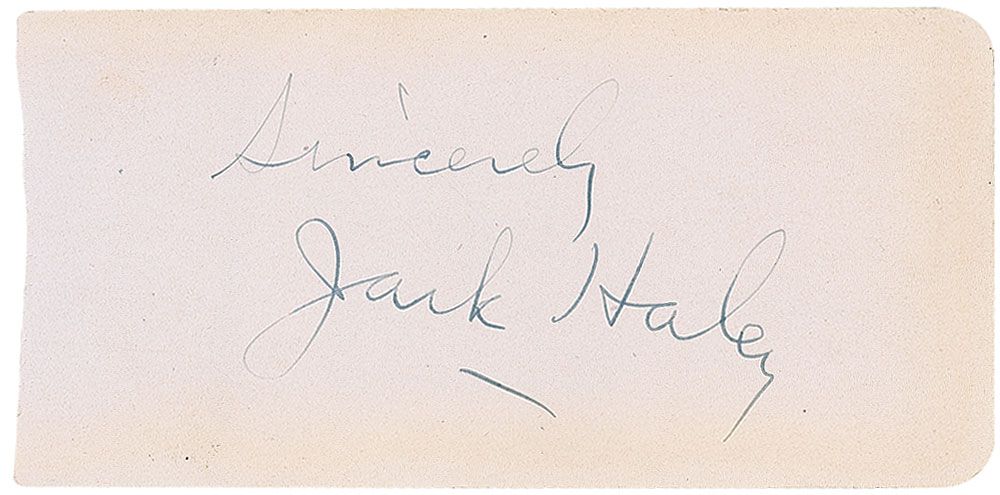 Sincerely
Jack Haley